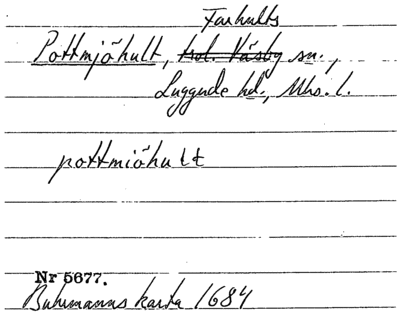 Farhults
Pottmjöhult, kol. Väsby sn.,
Luggude hd., Mhs. l.
pottmiöhult
Nr 5677.
Buhrmanns karta 1684